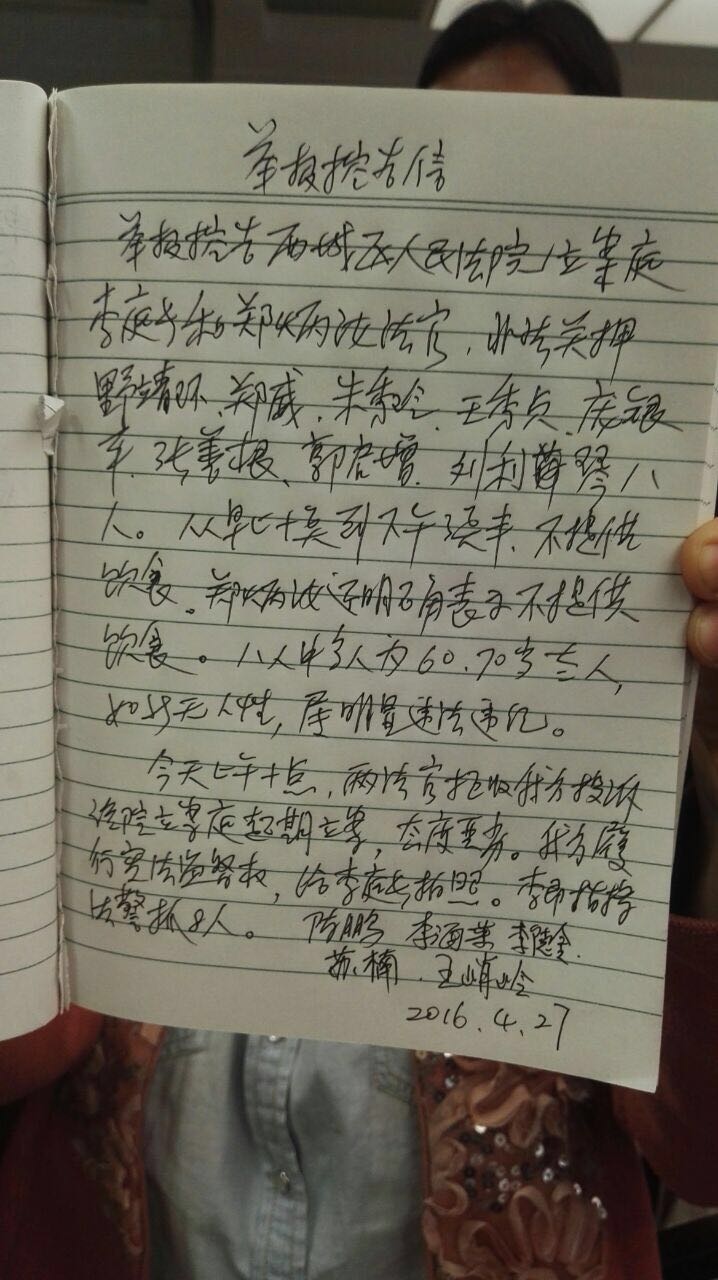 举报控告信
举报控告西城区人民法院立案庭
李庭长和郑炳汝法官,非法关押
野靖环、郑威、朱秀玲、王秀贞、庞银
张善根、郭启增、刘利 琴八
人。从早上十点到下午3点半,不提供
饮食。郑炳汝还明确表示不提供
饮食。八人中多人为60.70岁老人,
如此无人性,属明显违法违纪。
今天上午十点,两法官拒收我方投诉
该院立案庭超期立案,态度恶劣。我方履
行宪法监督权,给李庭长拍照。李即指挥
法警抓8人。 陈鹏 李海荣 李
苏楠 王峭岭
2016.4.27